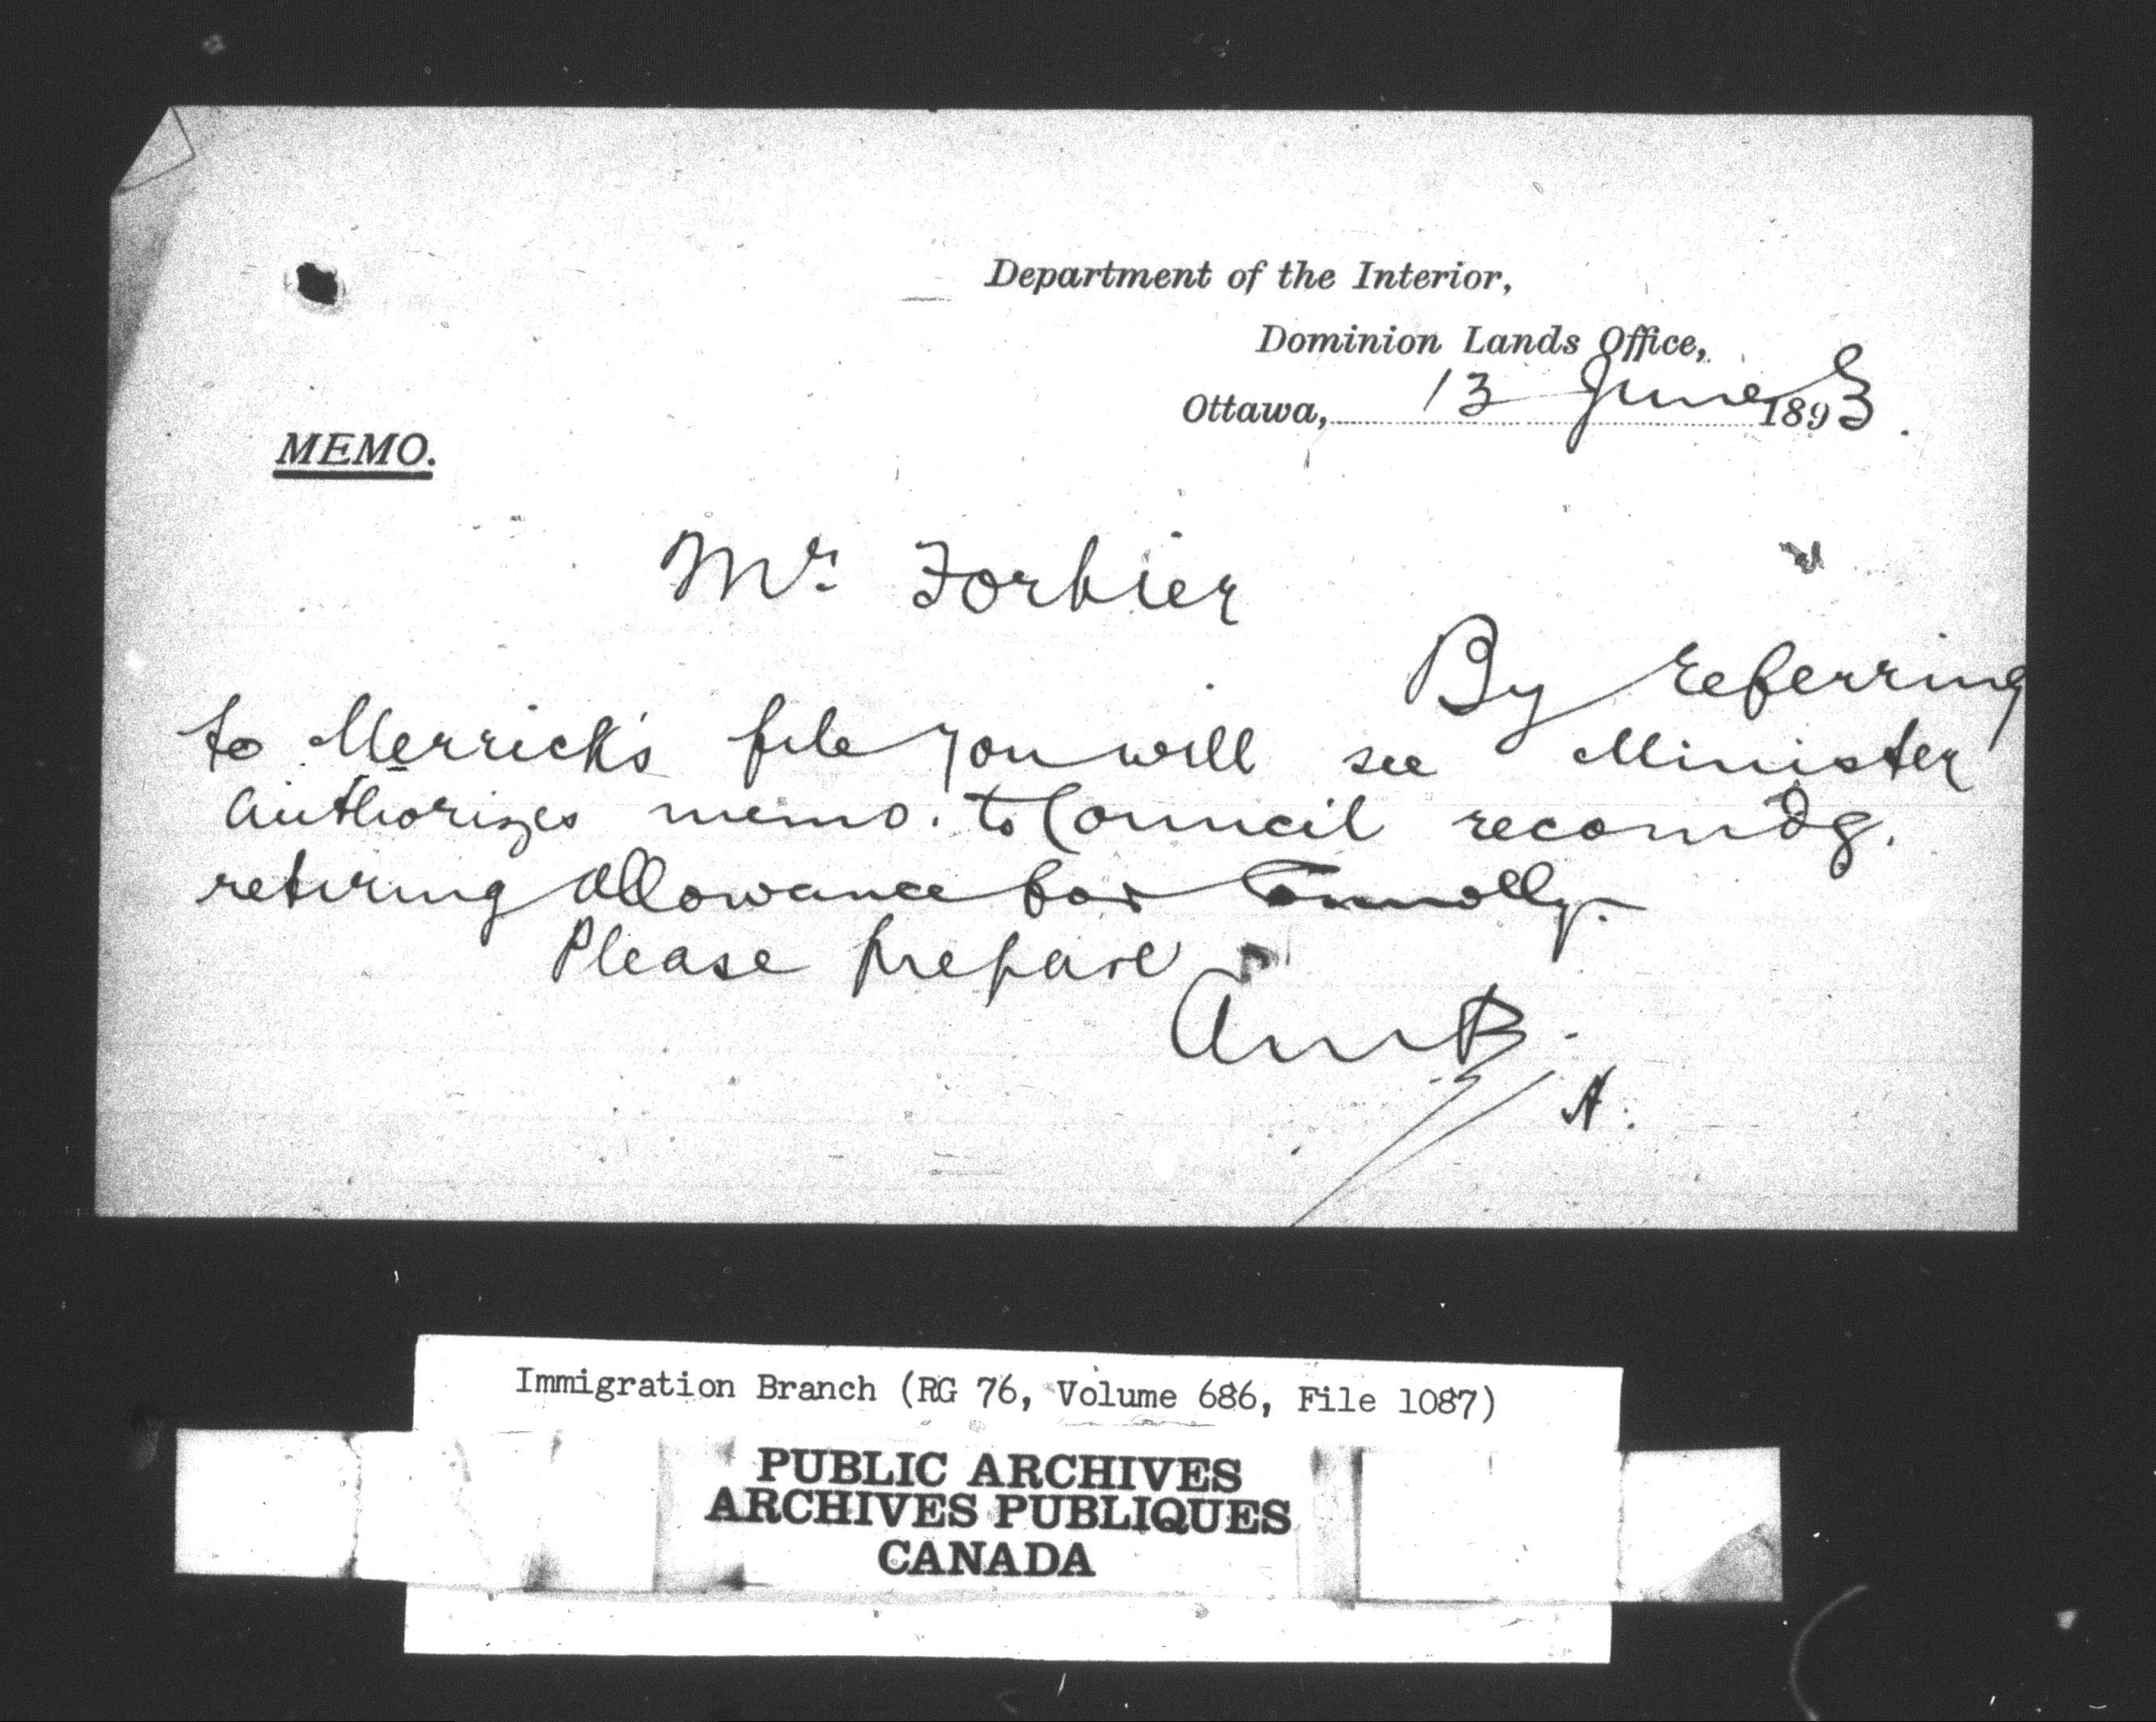 Department of the Interior,
Dominion Lands Office,
Ottawa, 13 June 1893.
MEMO.
Mr. Forbier
By referring
to Merrick's file you will see Minister
authorizes memo. to Council recomdg.
retiring allowance for Connolly.
Please prepare
AMB.
A.
Immigration Branch (RG 76, Volume 686, File 1087)
PUBLIC ARCHIVES
ARCHIVES PUBLIQUES
CANADA